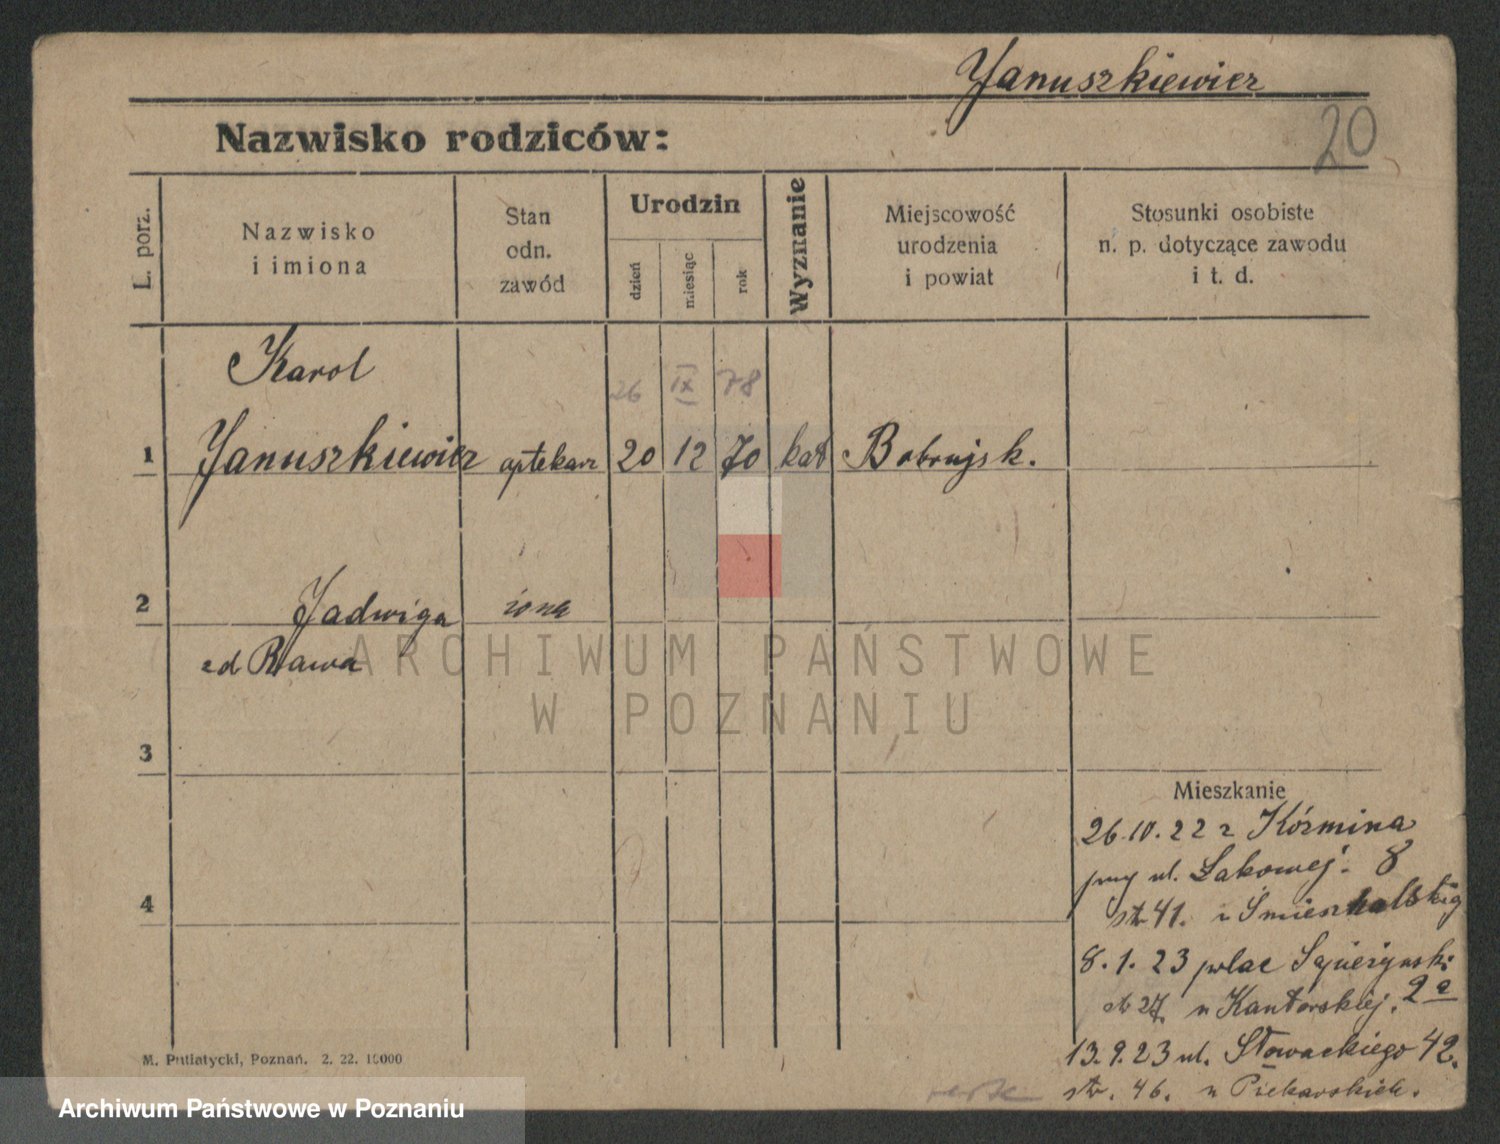 Januszkiewicz
20
Nazwisko rodziców:
L. porz.
Nazwisko
i imiona
Stan
odn.
zawód
Urodzin
dzień
miesiąc
rok
Wyznanie
Miejscowość
urodzenia
i powiat
Stosunki osobiste
n. p. dotyczące zawodu
i t. d.
Karol
26 IX 78
1 Januszkiewicz aptekarz 20 12 70 kat Bobrujsk.
2 Jadwiga żona
zd Rawa
ARCHIWUM PAŃSTWOWE
W POZNANIU
3
4
Mieszkanie
26.10.22 z Kózmina
przy ul. Łakowej. 8
str 41. u
8.1.23 plac Sapieżynski
2a
str 27. u Kantorskiej.
13.9.23 ul. Słowackiego 42.
str. 46. u Piekarskich.
M. Putiatycki, Poznań. 2. 22. 15000
Archiwum Państwowe w Poznaniu